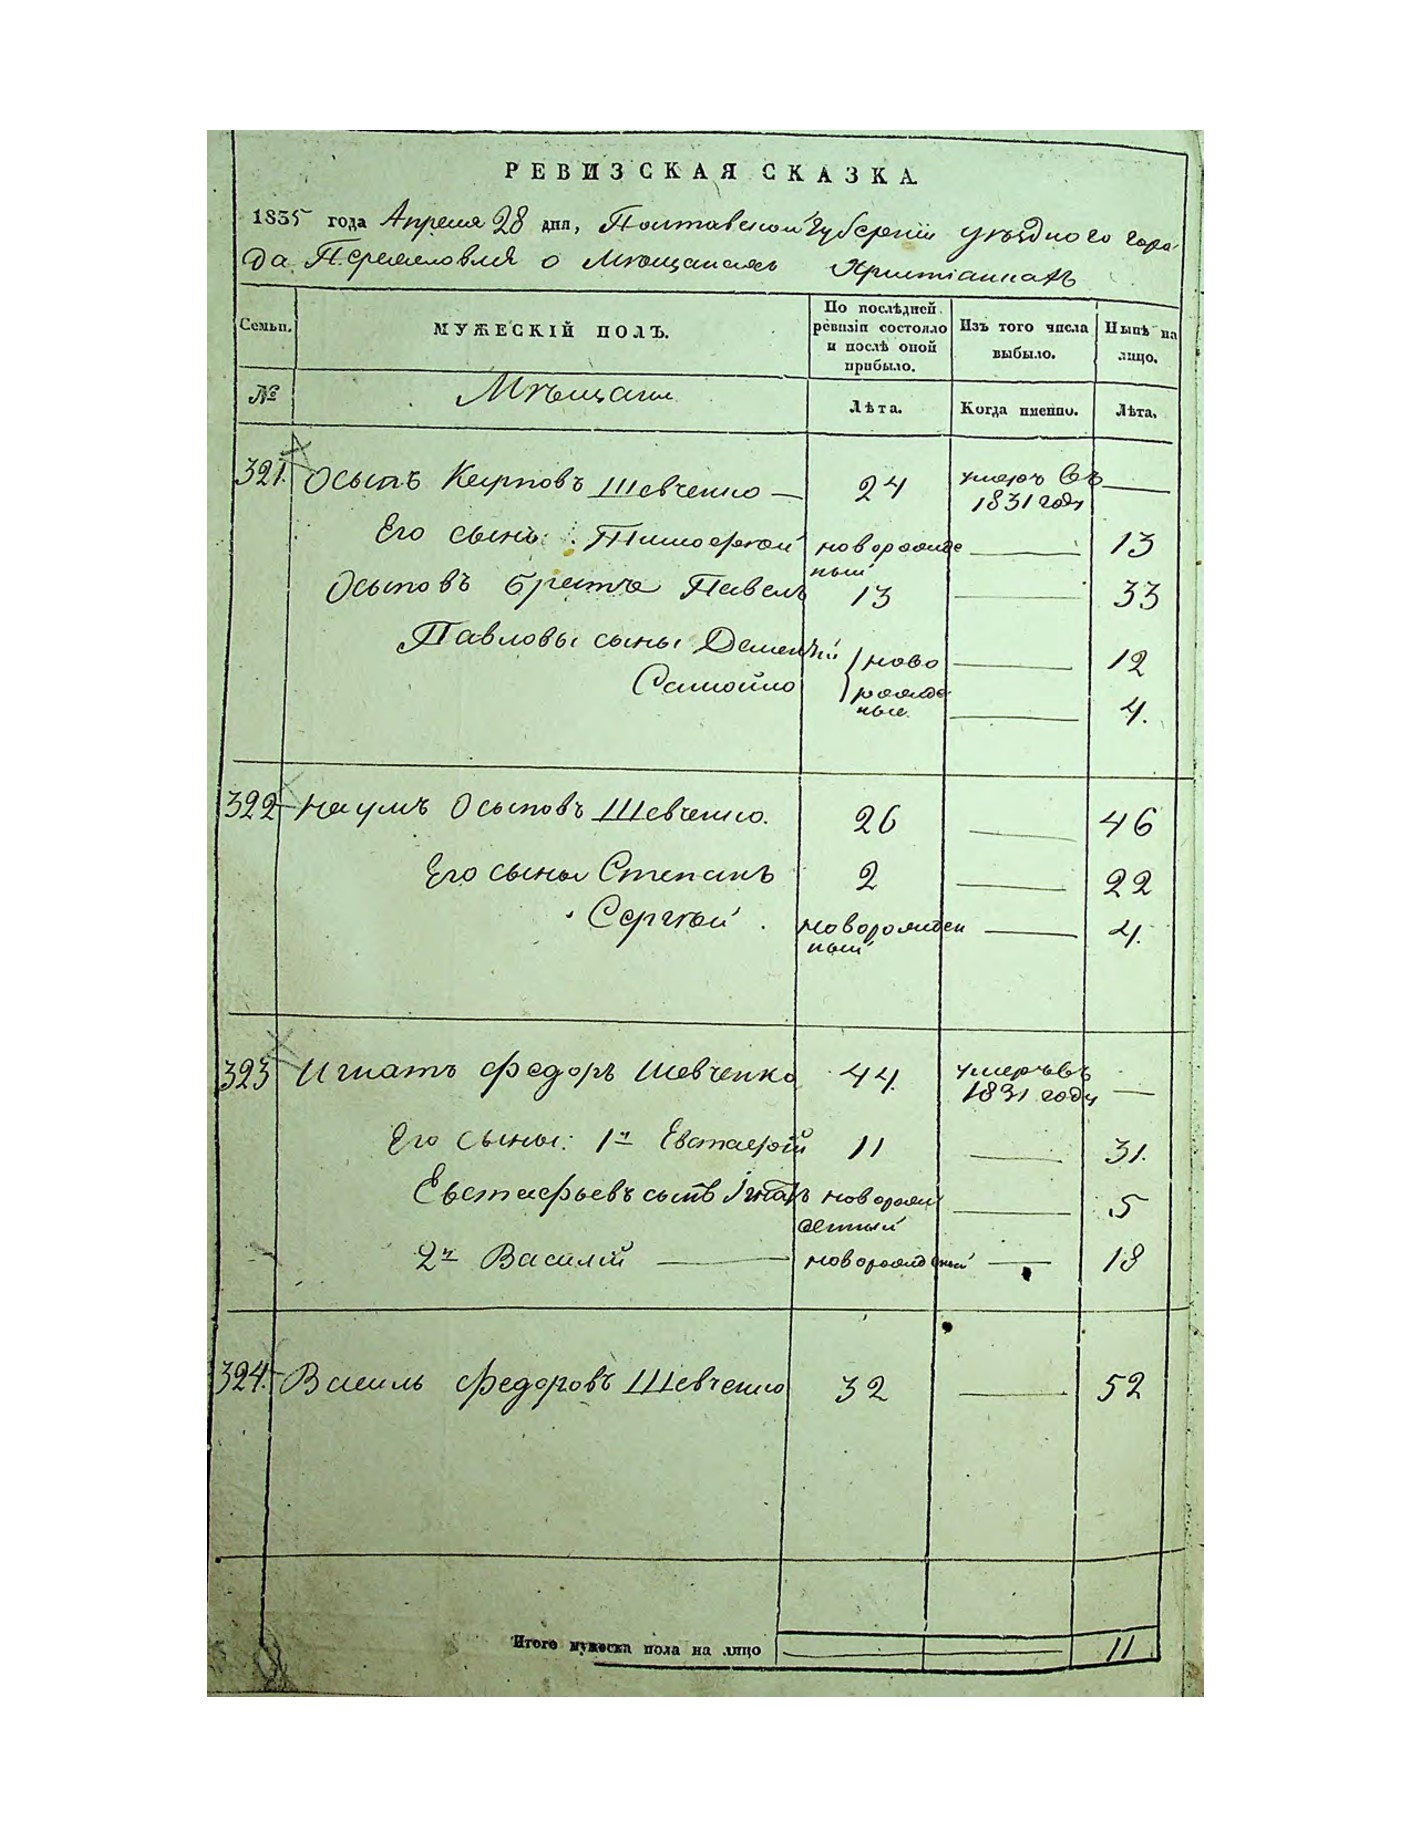 РЕВИЗСКАЯ СКАЗКА
1835 года Апреля 28 дня, Полтавской Губерніи уѣзднаго горо-
да Переяславля о Мѣщанахъ Христіанахъ
Семьи. МУЖЕСКІЙ ПОЛЪ. По послѣдней ревизіи состояло и послѣ оной прибыло. Изъ того числа выбыло. Нынѣ на лицо.
№ Мѣщани Лѣта. Когда именно. Лѣта.
321. Осыпъ Карповъ Шевченко — 24 умеръ въ 1831 году —
Его сынъ: Тимофей новорожде ный — 13
Осыповъ братъ Павелъ 13 — 33
Павловы сыны Дементій ново — 12
Самойло рожде ные — 4.
322 Наумъ Осыповъ Шевченко. 26 — 46
Его сыны Степанъ 2 — 22
Сергѣй новорожден ный — 4.
323 Игнатъ Федоръ Шевченко 44 умеръ въ 1831 году —
Его сыны: 1й Евстафій 11 — 31.
Евстафьевъ сынъ Ігнатъ новорож денный — 5
2й Василій — новорожденый — 18
324. Василь Федоровъ Шевченко 32 — 52
Итого мужеска пола на лицо — — 11